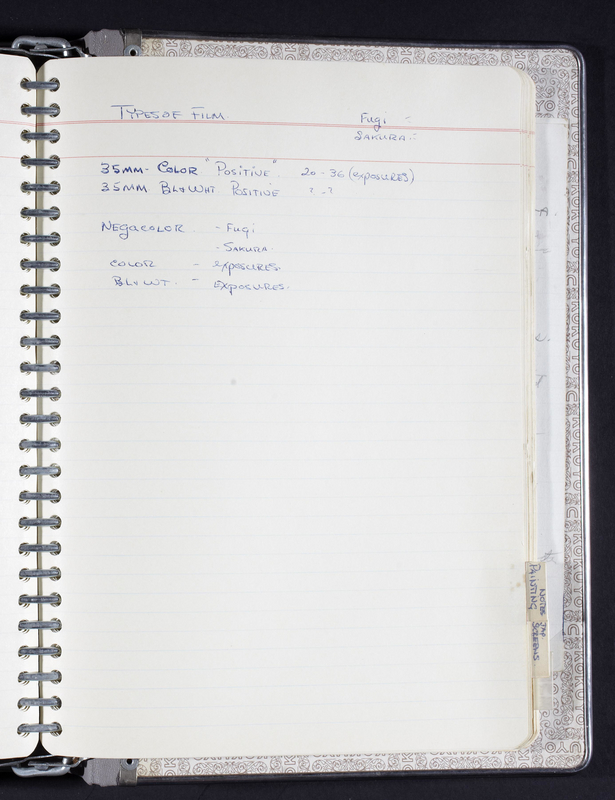 TYPES OF FILM.
Fugi -
SAKURA -
35MM - COLOR "POSITIVE". 20 - 36 (EXPOSURES)
35MM BL & WHT POSITIVE ? - ?
NEGACOLOR. - Fugi
- SAKURA.
COLOR - EXPOSURES.
BL & WT. - EXPOSURES.
NOTES JAP
PAINTING SCREENS
KOKUYO